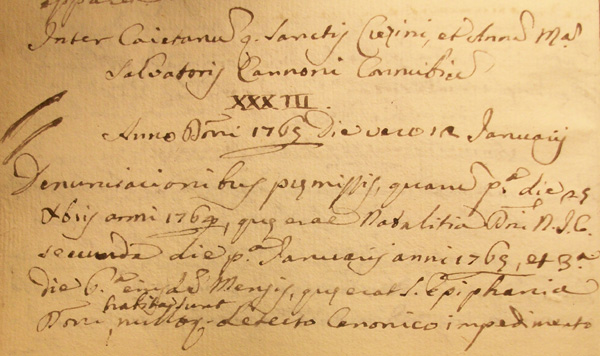 Inter Caietanũ q. Sanctis Cicini, et Annã Mã
Salvatoris Zannoni Connubiũ
XXXIII.
Anno Dñi 1765 Die vero 12 Januarij
Denunciacionibus pr̨missis, quarũ pª. die 25
Xbris anni 1764, quę erat Natalitia Dñi N. J. C.
secunda die pª. Januarij anni 1765, et 3ª.
die 6ª. eiusdẽ Mensis, quę erat S. Epiphania
habita sunt
Dñi, nulloq. detecto Canonico impedimento